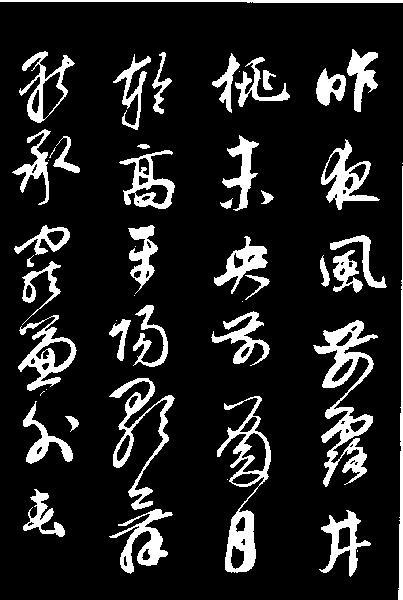 昨夜風開露井
桃未央前殿月
輪高平陽歌舞
新承寵簾外春